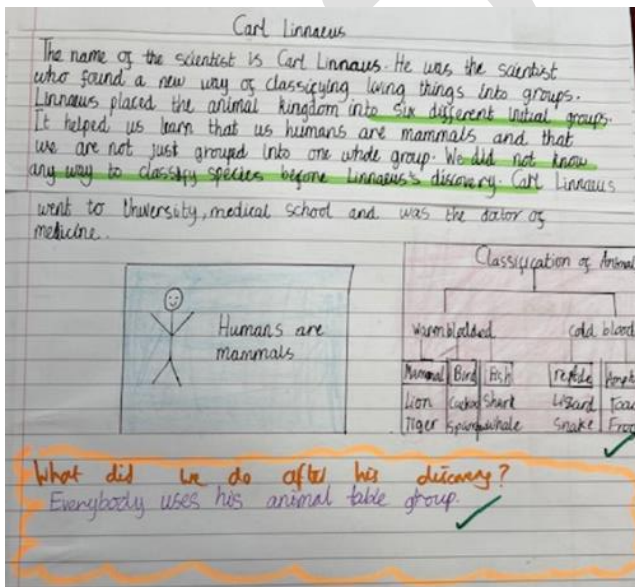 Carl Linnaeus
The name of the scientist is Carl Linnaus. He was the scientist
who found a new way of classifying living things into groups.
Linnaeus placed the animal kingdom into six different initial groups.
It helped us learn that us humans are mammals and that
we are not just grouped into one whole group. We did not know
any way to classify species before Linnaeus's discovery. Carl Linnaeus
went to University, medical school and was the doctor of
medicine.
Classification of Animal
Humans are
mammals
warmblodded
cold blood
Mammal Bird Fish reptile Amph
Lion Cuckoo Shark Lizard Toad
Tiger whale Snake Frog
What did we do after his discovery?
Everybody uses his animal table group.